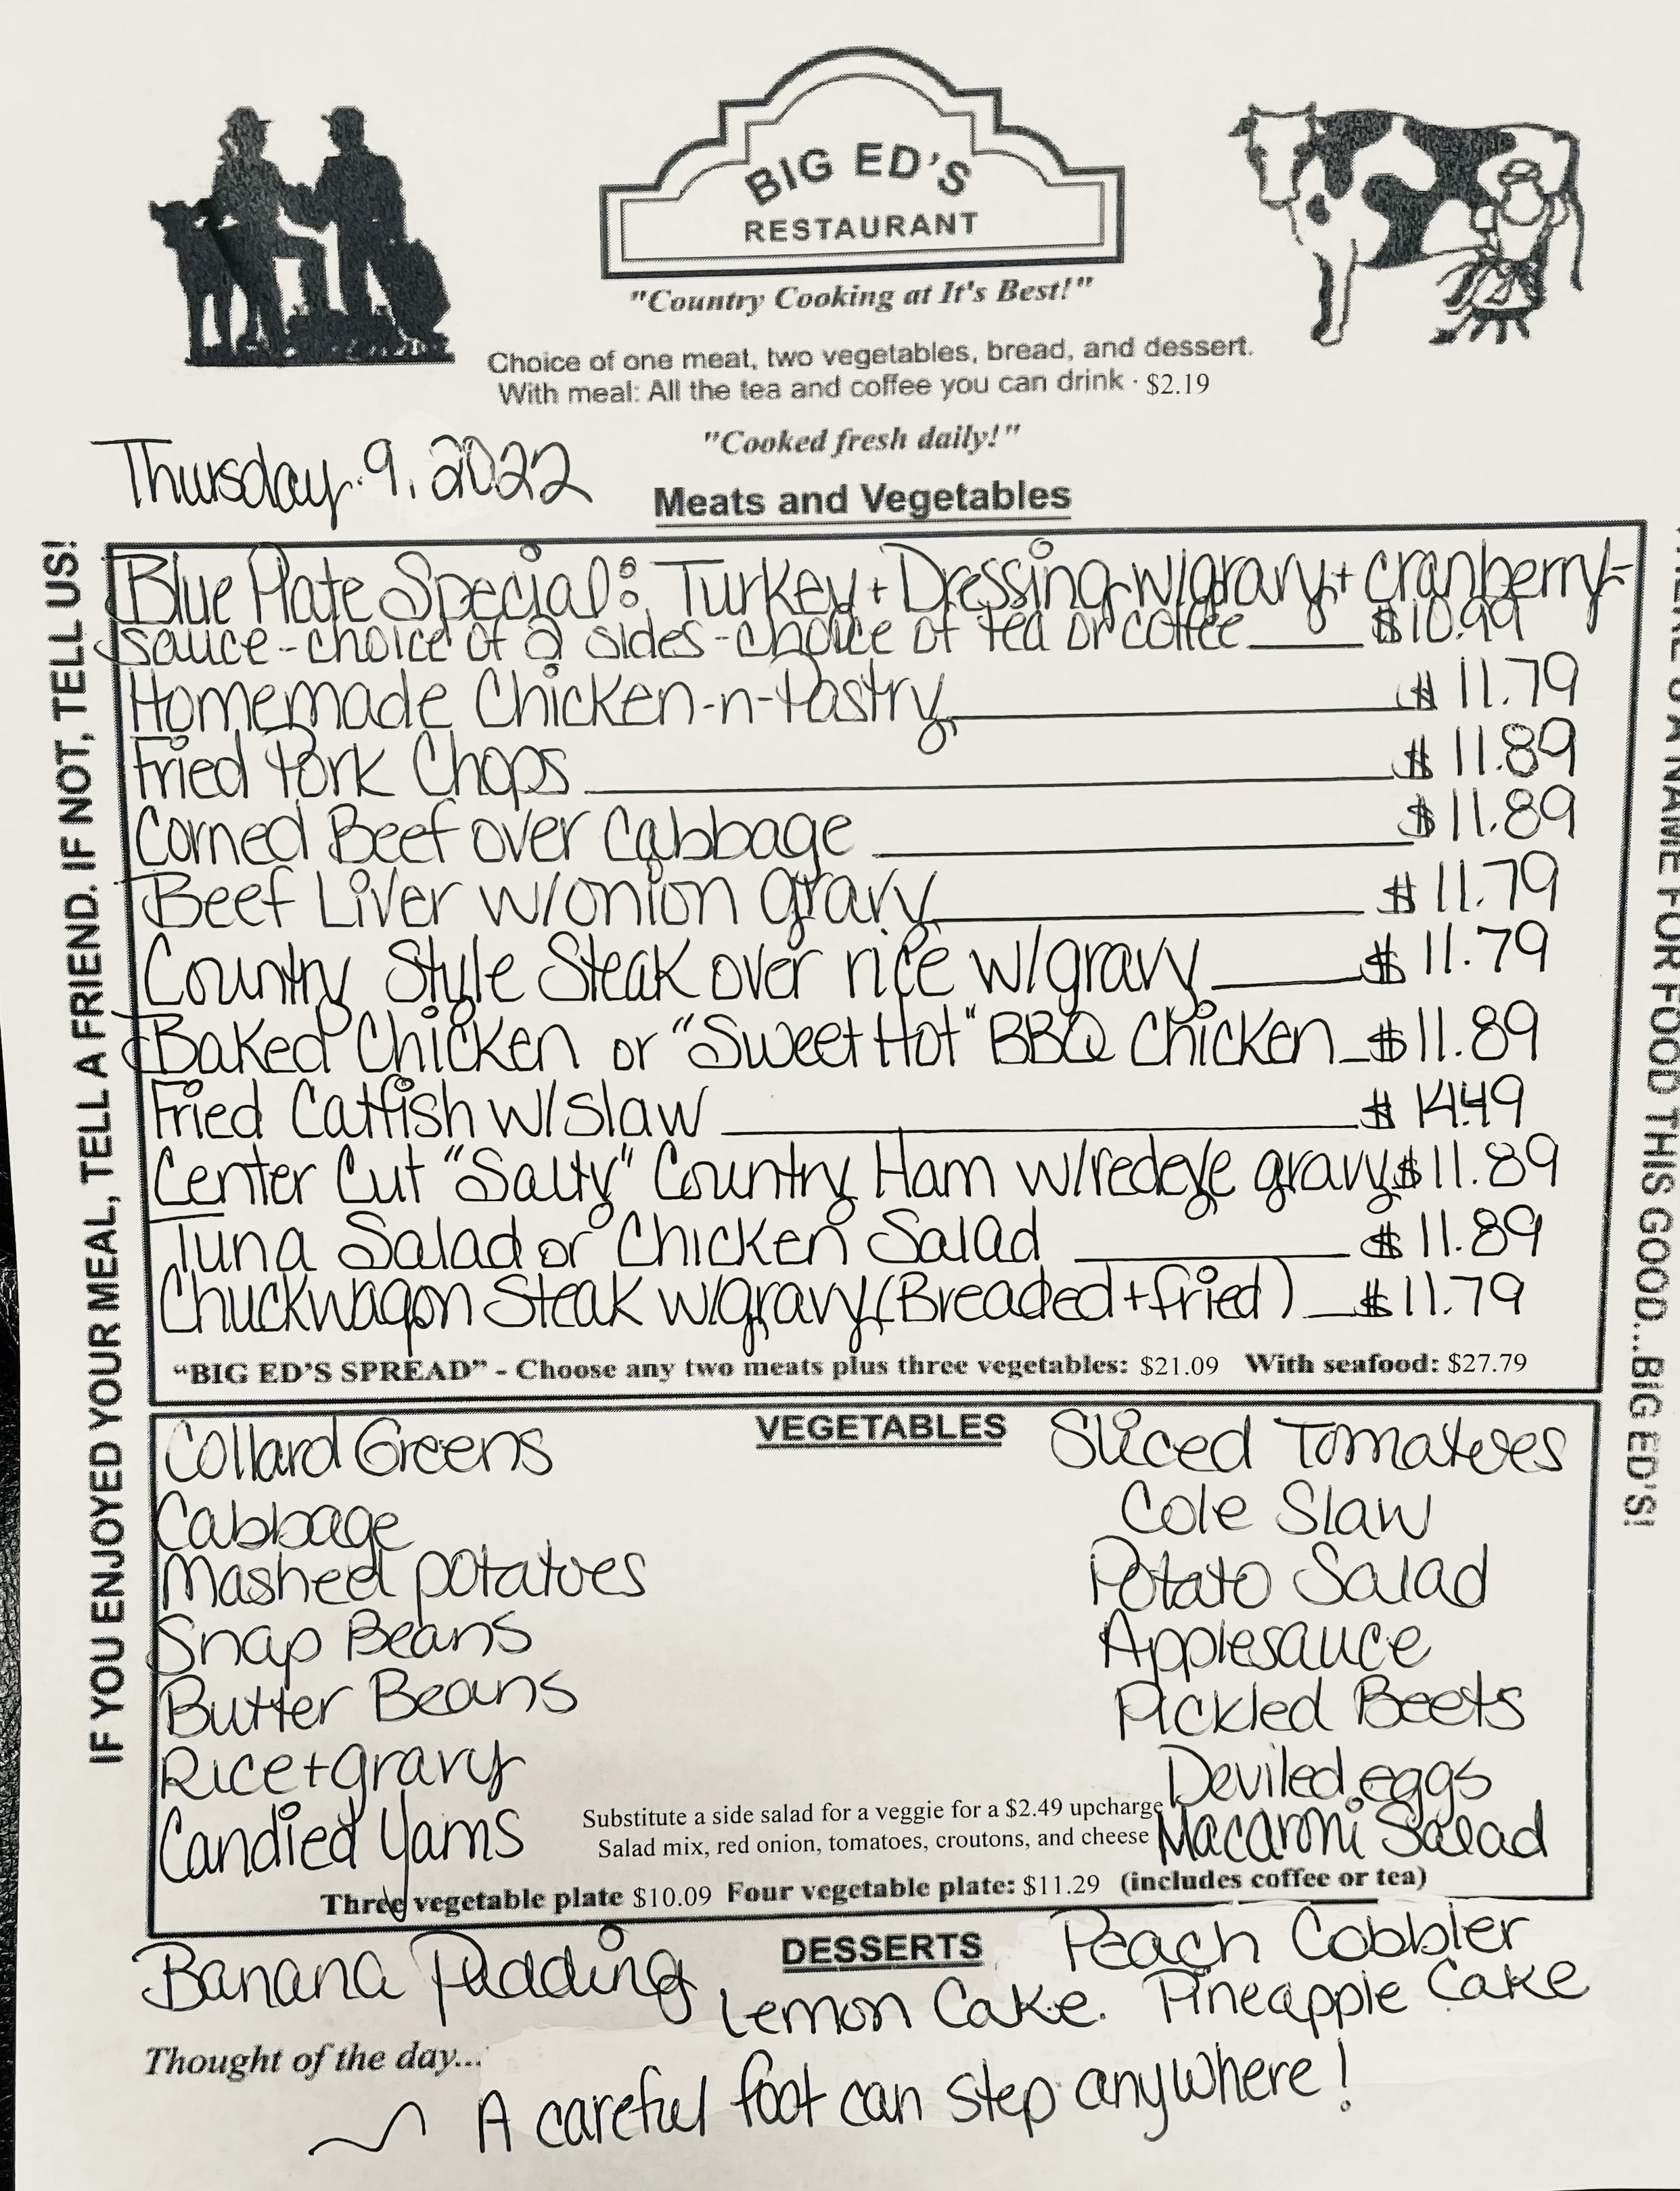 BIG ED'S
RESTAURANT
"Country Cooking at It's Best!"
Choice of one meat, two vegetables, bread, and dessert.
With meal: All the tea and coffee you can drink · $2.19
"Cooked fresh daily!"
Thursday 9, 2022
Meats and Vegetables
IF YOU ENJOYED YOUR MEAL, TELL A FRIEND. IF NOT, TELL US!
Blue Plate Special: Turkey + Dressing w/gravy + cranberry-
sauce - choice of 2 sides - choice of tea or coffee $10.99
Homemade Chicken-n-Pastry $11.79
Fried Pork Chops $11.89
Corned Beef over Cabbage $11.89
Beef Liver w/onion gravy $11.79
Country Style Steak over rice w/gravy $11.79
Baked Chicken or "Sweet Hot" BBQ Chicken $11.89
Fried Catfish w/slaw $14.49
Center Cut "Salty" Country Ham w/redeye gravy $11.89
Tuna Salad or Chicken Salad $11.89
Chuckwagon Steak w/gravy (Breaded + fried) $11.79
"BIG ED'S SPREAD" - Choose any two meats plus three vegetables: $21.09 With seafood: $27.79
A NAME FOR FOOD THIS GOOD...BIG ED'S!
VEGETABLES
Collard Greens
Cabbage
Mashed potatoes
Snap Beans
Butter Beans
Rice + gravy
Candied Yams
Sliced Tomatoes
Cole Slaw
Potato Salad
Applesauce
Pickled Beets
Deviled eggs
Macaroni Salad
Substitute a side salad for a veggie for a $2.49 upcharge
Salad mix, red onion, tomatoes, croutons, and cheese
Three vegetable plate $10.09 Four vegetable plate: $11.29 (includes coffee or tea)
DESSERTS
Banana Pudding
Peach Cobbler
Lemon Cake. Pineapple Cake
Thought of the day...
A careful foot can step anywhere!